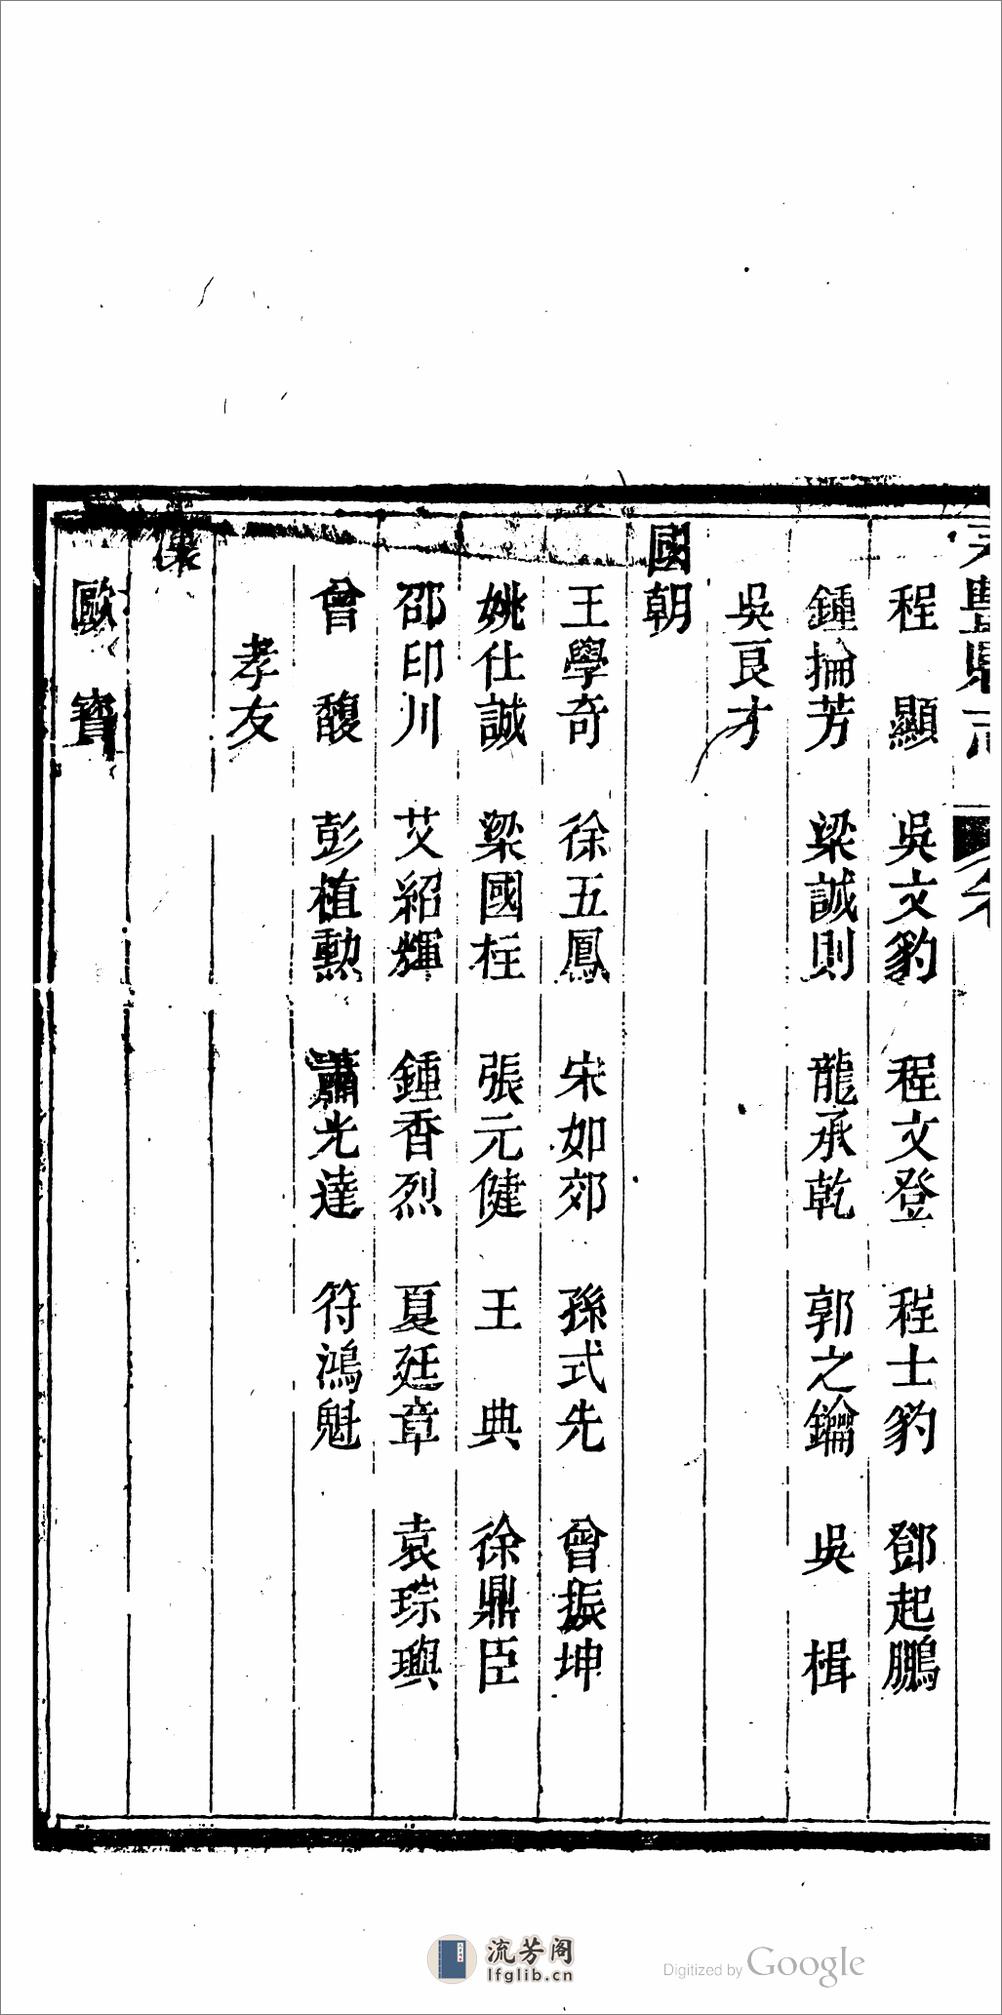 程顯 吳文豹 程文登 程士豹 鄧起鵬
鍾掄芳 梁誠則 龍承乾 郭之鑰 吳楫
吳良才
國朝
王學奇 徐五鳳 宋如郊 孫式先 曾振坤
姚仕誠 梁國柱 張元健 王典 徐鼎臣
邵印川 艾紹輝 鍾香烈 夏廷章 袁琮璵
曾馥 彭植勲 蕭光達 符鴻魁
孝友
歐寶
流芳阁
lfglib.cn
Digitized by Google